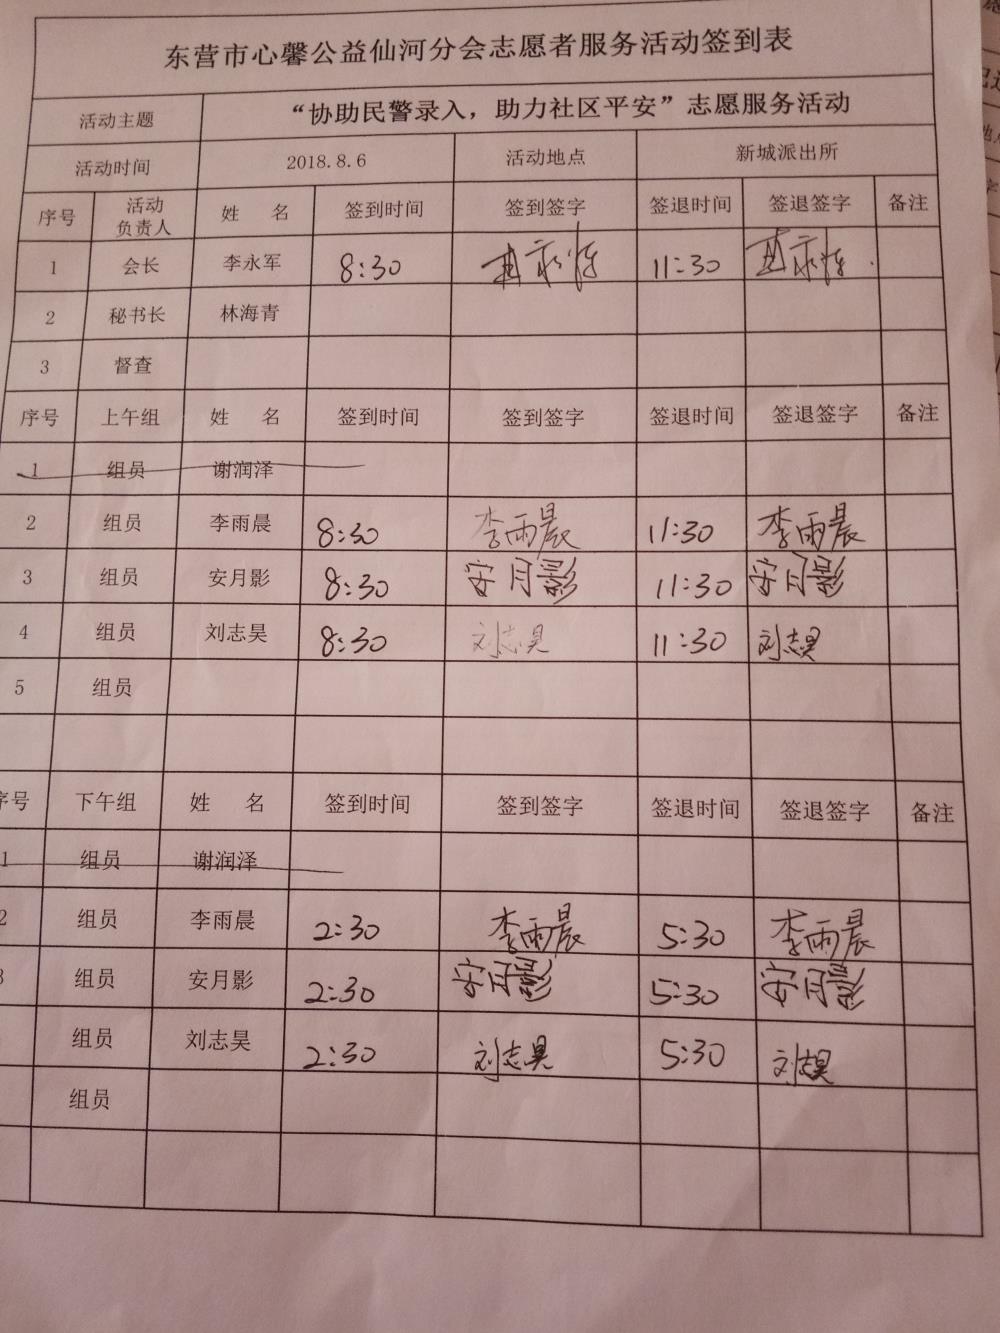 东营市心馨公益仙河分会志愿者服务活动签到表
活动主题 “协助民警录入，助力社区平安”志愿服务活动
活动时间 2018.8.6 活动地点 新城派出所
序号 活动负责人 姓 名 签到时间 签到签字 签退时间 签退签字 备注
1 会长 李永军 8:30 11:30
2 秘书长 林海青
3 督查
序号 上午组 姓 名 签到时间 签到签字 签退时间 签退签字 备注
1 组员 谢润泽
2 组员 李雨晨 8:30 李雨晨 11:30 李雨晨
3 组员 安月影 8:30 安月影 11:30 安月影
4 组员 刘志昊 8:30 刘志昊 11:30 刘志昊
5 组员
序号 下午组 姓 名 签到时间 签到签字 签退时间 签退签字 备注
1 组员 谢润泽
2 组员 李雨晨 2:30 李雨晨 5:30 李雨晨
3 组员 安月影 2:30 安月影 5:30 安月影
组员 刘志昊 2:30 刘志昊 5:30 刘志昊
组员